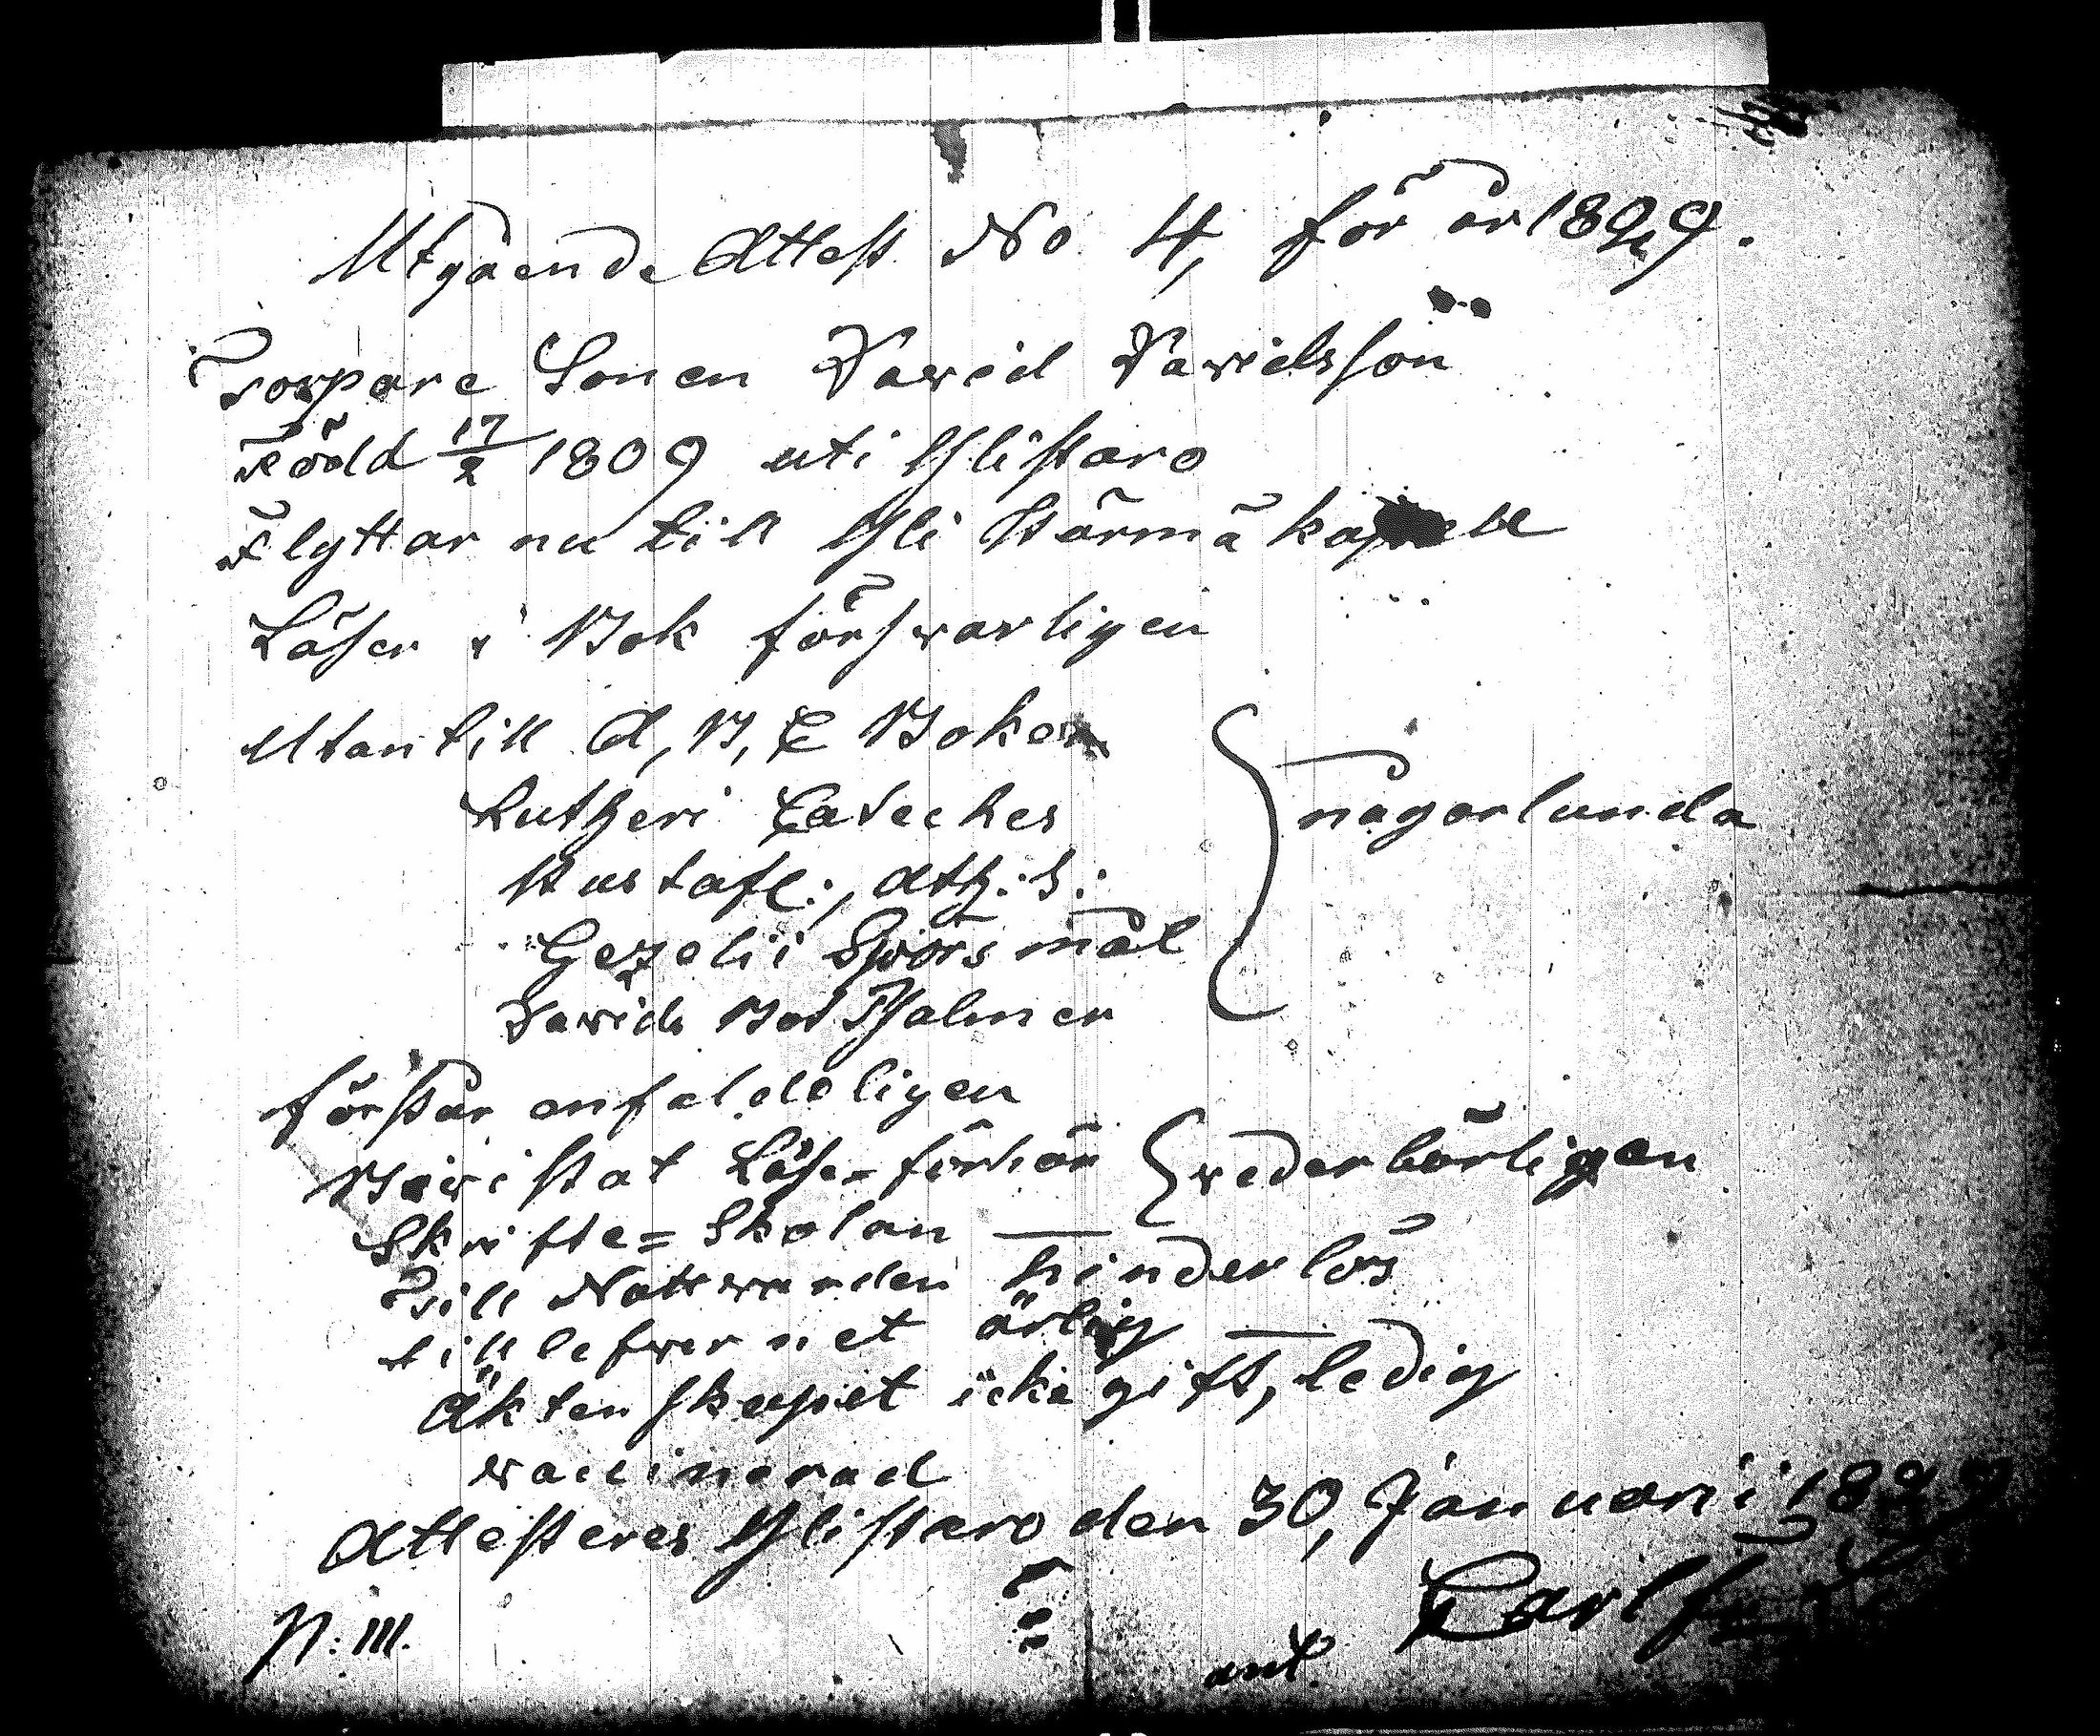 Utgående Attest No 4, för år 1829.
Torpare Sonen David Davidsson
Född 17/2 1809 uti Ylistaro
Flyttar nu till Yli Härmä kapell
Läser i Bok försvarligen
Utantill A, B, C Boken
Lutheri Cateches
någorlunda
Hustafl:, Ath: S:
Gezelii Spörsmål
Davids Bot Psalmer
förstår enfaldeligen
Bevistat Läse=förhör vederbörligen
Skrifte=Skolan
Till Nattvarden hinderlös
till lefvernet ärlig
Äktenskapet icke gift, ledig
vaccinerad
Attesteras Ylistaro den 30, Januarii 1829
P: 111.
ant.